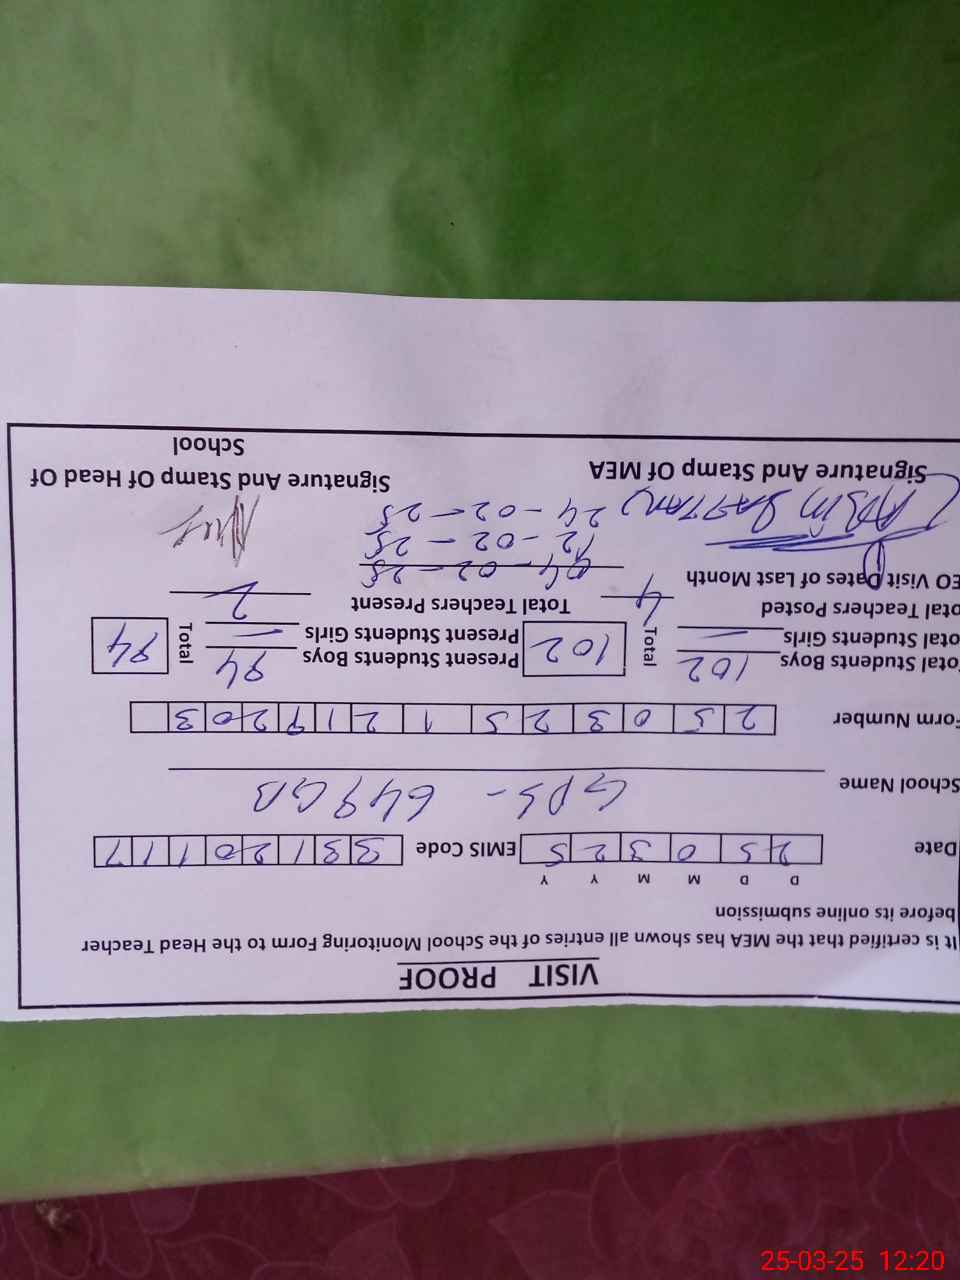 VISIT PROOF
It is certified that the MEA has shown all entries of the School Monitoring Form to the Head Teacher
before its online submission
D D M M Y Y
Date 2 5 0 3 2 5 EMIS Code 3 3 1 2 0 1 1 7
School Name GPS - 649 GB
Form Number 2 5 0 3 2 5 1 2 1 9 2 0 3
Total Students Boys 102 Total 102 Present Students Boys 94 Total 94
otal Students Girls — Present Students Girls —
otal Teachers Posted 4 Total Teachers Present 2
EO Visit Dates of Last Month 04-02-25
12-02-25
24-02-25
Signature And Stamp Of MEA Signature And Stamp Of Head Of
School
25-03-25 12:20